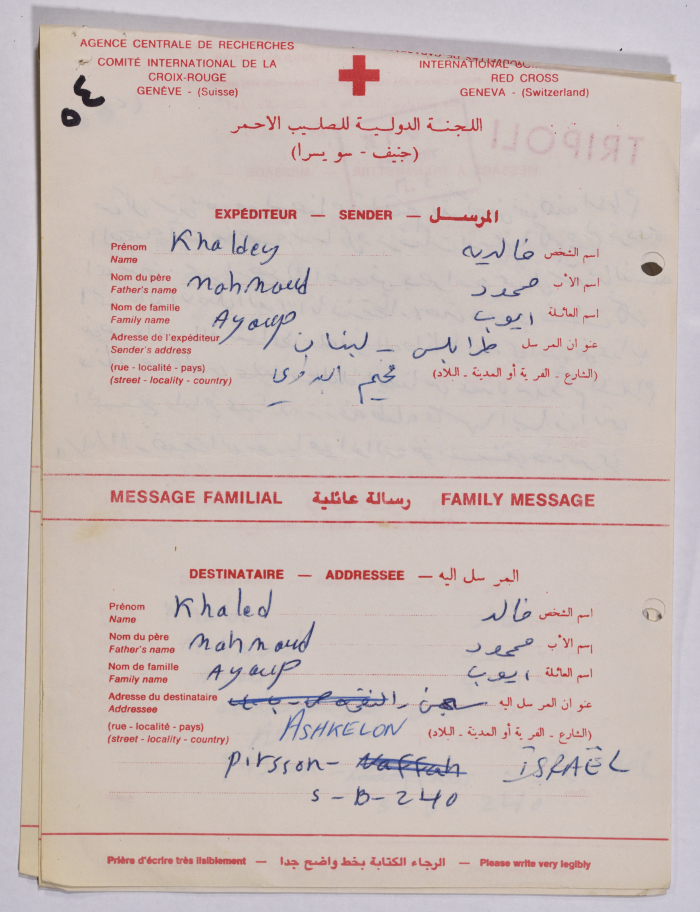 AGENCE CENTRALE DE RECHERCHES
COMITÉ INTERNATIONAL DE LA CROIX-ROUGE
GENÈVE - (Suisse)
INTERNATIONAL
RED CROSS
GENEVA - (Switzerland)
٥٤
اللجنة الدولية للصليب الاحمر
(جنيف - سويسرا)
TRIPOLI
EXPÉDITEUR — SENDER — المرسل
Prénom Khaldey خالديه اسم الشخص
Name
Nom du père Mahmoud محمود اسم الأب
Father's name
Nom de famille Ayoup ايوب اسم العائلة
Family name
Adresse de l'expéditeur طرابلس - لبنان عنوان المرسل
Sender's address
(rue - localité - pays) مخيم البداوي (الشارع - القرية أو المدينة - البلاد)
(street - locality - country)
MESSAGE FAMILIAL رسالة عائلية FAMILY MESSAGE
DESTINATAIRE — ADDRESSEE — المرسل اليه
Prénom Khaled خالد اسم الشخص
Name
Nom du père Mahmoud محمود إسم الأب
Father's name
Nom de famille Ayoup ايوب اسم العائلة
Family name
Adresse du destinataire سجن عنوان المرسل اليه
Addressee
(rue - localité - pays) ASHKELON (الشارع - القرية أو المدينة - البلاد)
(street - locality - country)
Pirsson - Naffah ISRAËL
S-B-240
Prière d'écrire très lisiblement — الرجاء الكتابة بخط واضح جدا — Please write very legibly